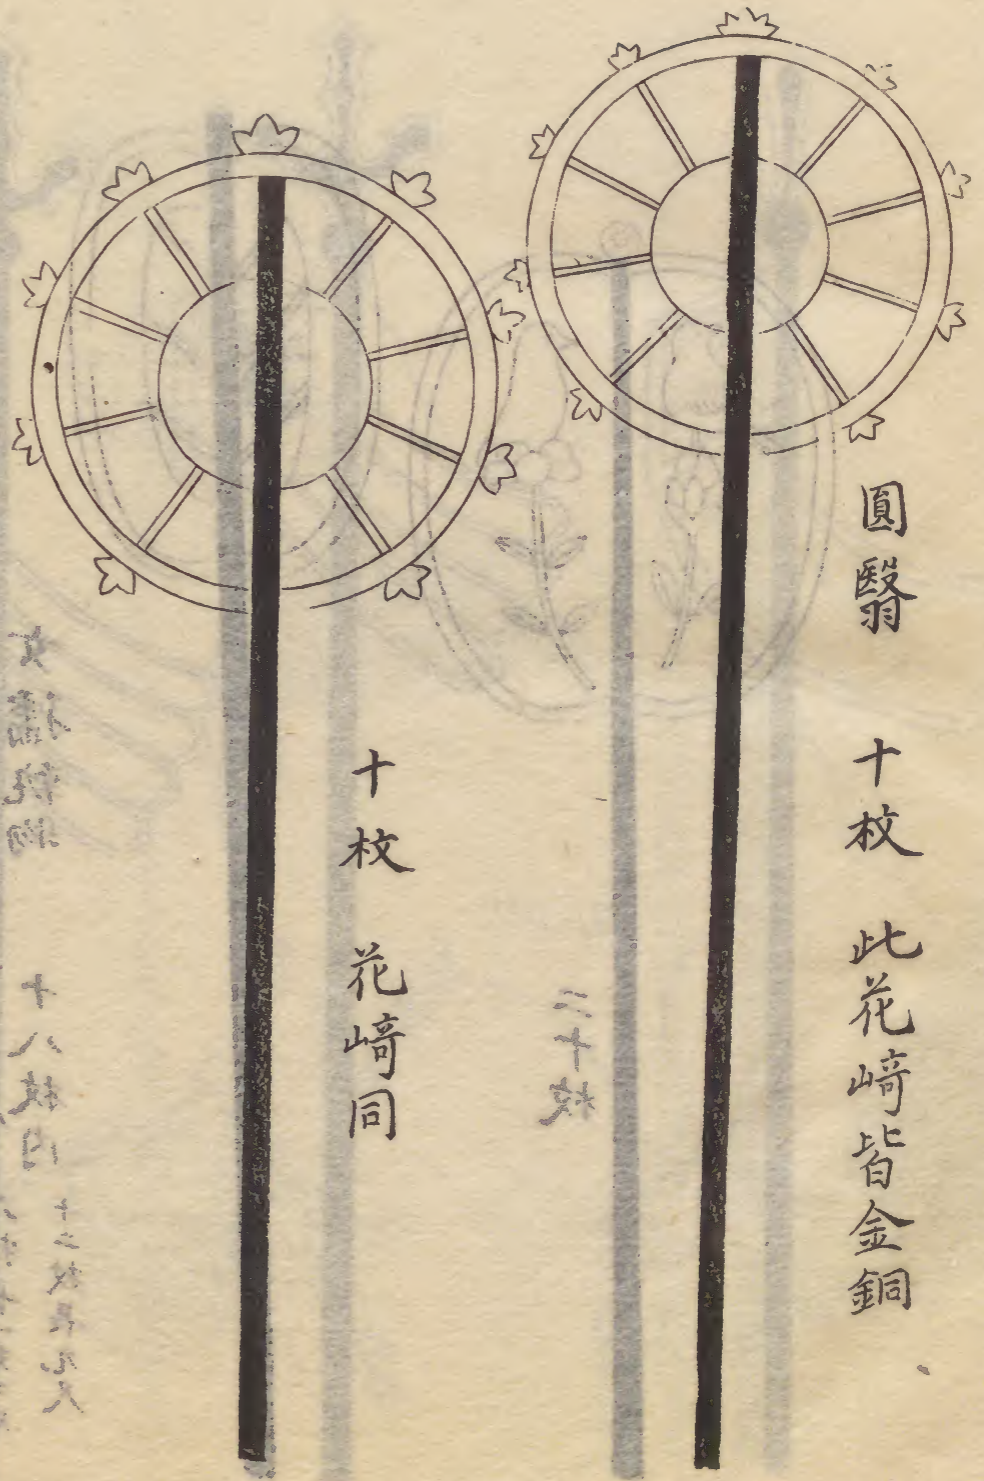 圓翳 十枚 此花﨑皆金銅
十枚 花﨑同